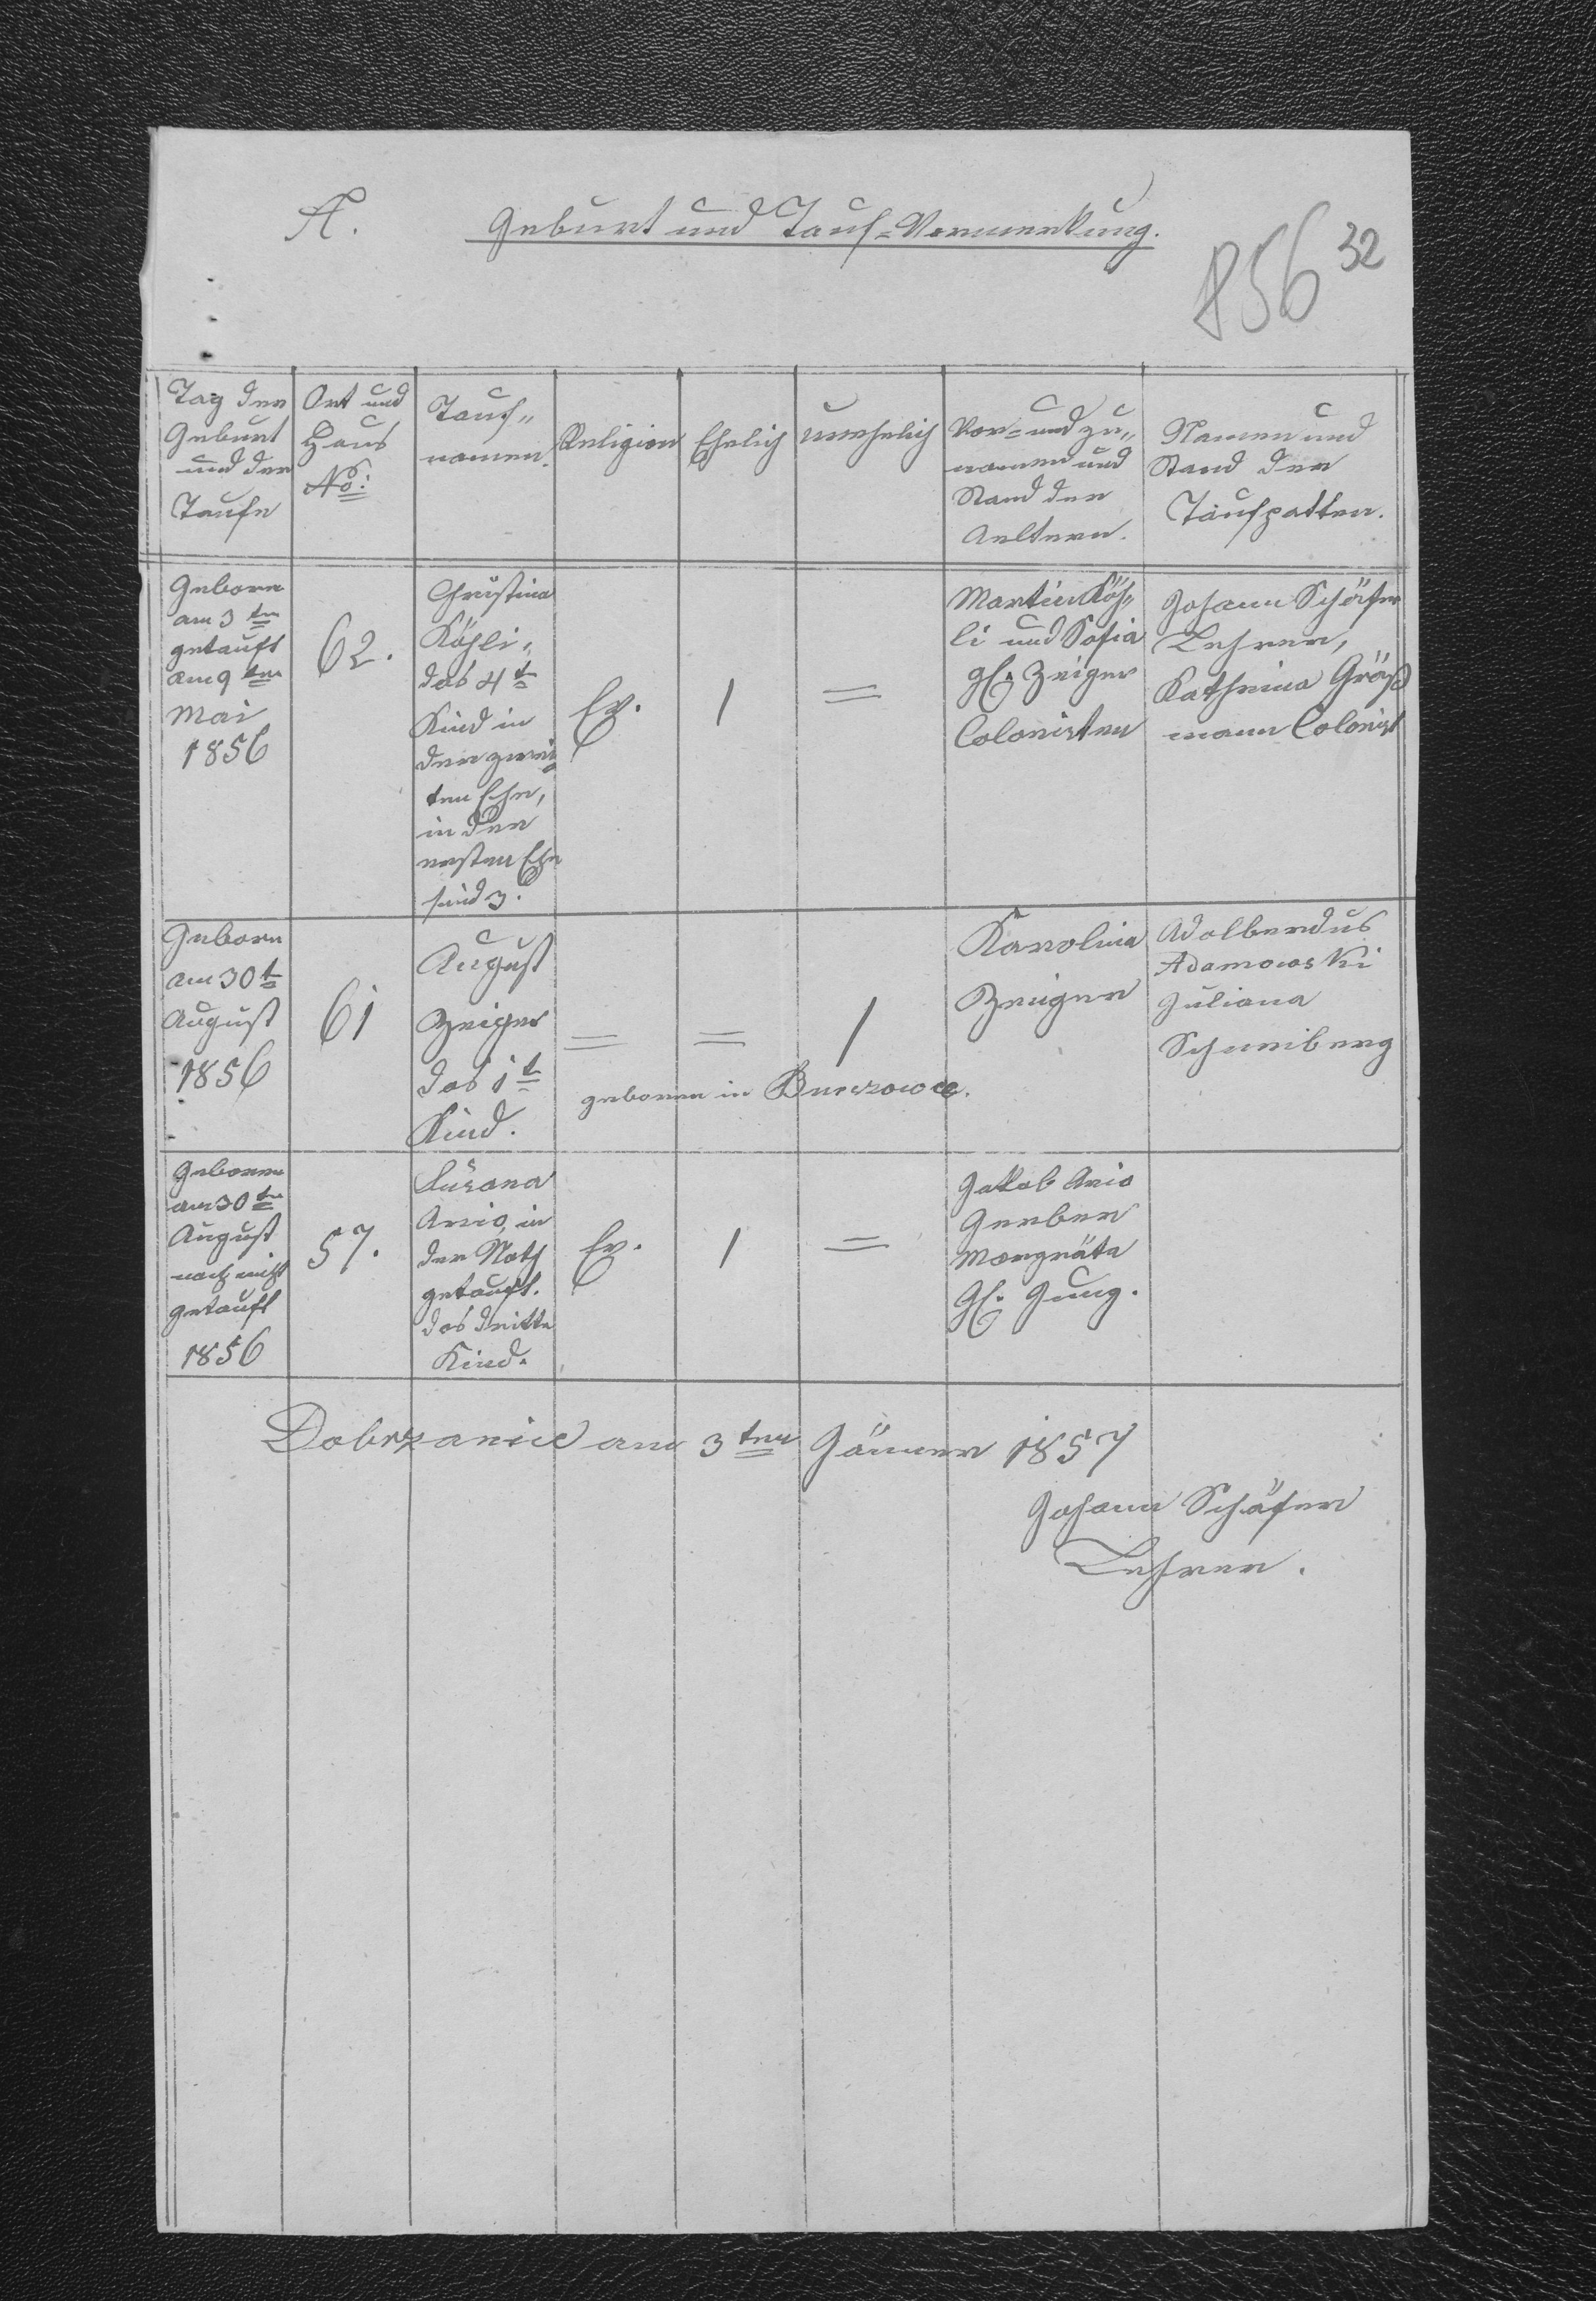 A.
Geburt und Tauf-Vormerkung.
856 32
Tag der
Geburt
und der
Taufe
Ort und
Haus
No:
Tauf"
namen.
Religion
Ehelich
unehelich
Vor- und zu"
namen und
Stand der
Aeltern.
Namen und
Stand der
Taufpatten.
Geboren
am 3ten
getauft
am 9ten
Mai
1856
62.
Christina
Köhli,
das 4te
Kind in
der zwei
ten Ehe,
in der
ersten Ehe
sind 3.
Ev.
1
=
Martin Köh"
li und Sofia
Zeiger
Colonisten
Johann Schäfer
Lehrer,
Kathrina Gräß
mann Colonist
Geboren
am 30t
August
1856
61
August
Zeiger
das 1t
Kind.
=
=
1
geboren in
Karolina
Zeuger
Adolberdus
Adamowski
Juliana
Geboren
am 30ten
August
noch nicht
getauft
1856
57.
Susana
in
der Noth
getauft.
das dritte
Kind.
Ev.
1
=
Jakob
Gerber
Margräta
Jung.
Dobrzanice am 3ten Jänner 1857
Johann Schäfer
Lehrer.